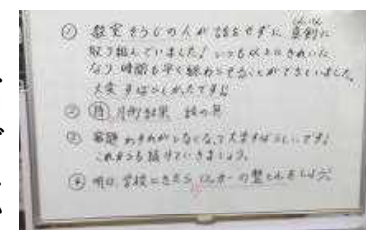 ① 教室そうじの人が話をせずに真剣に
取り組んでいました！いつも以上にきれいに
なり時間も早く終わらせることができていました。
大変すばらしかったです!!
②
③ 宿題わすれが少なくなって大変すばらしいです！
これからも続けていきましょう。
④ 明日、学校にきたらロッカーの整とんをしよう